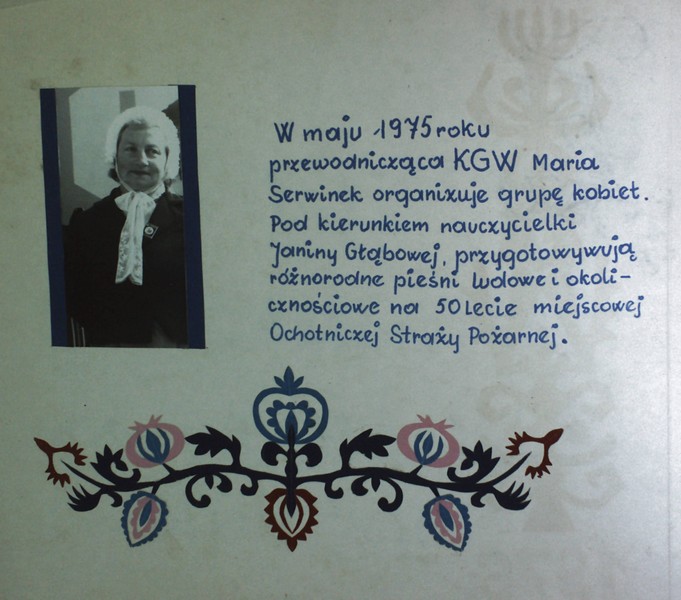 W maju 1975 roku
przewodnicząca KGW Maria
Serwinek organizuje grupę kobiet.
Pod kierunkiem nauczycielki
Janiny Głąbowej, przygotowywują
różnorodne pieśni ludowe i okoli-
cznościowe na 50 lecie miejscowej
Ochotniczej Straży Pożarnej.